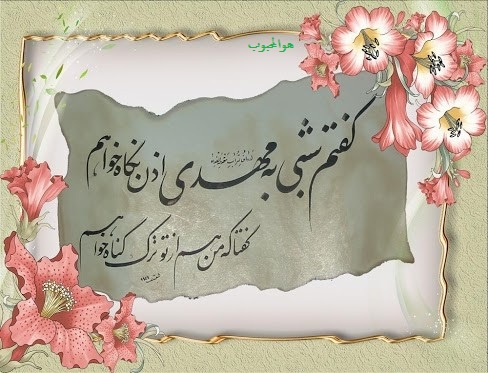 هوالمحبوب
گفتم شبی به مهدی اذن نگاه خواهم
گفتا که من هم از تو ترک گناه خواهم